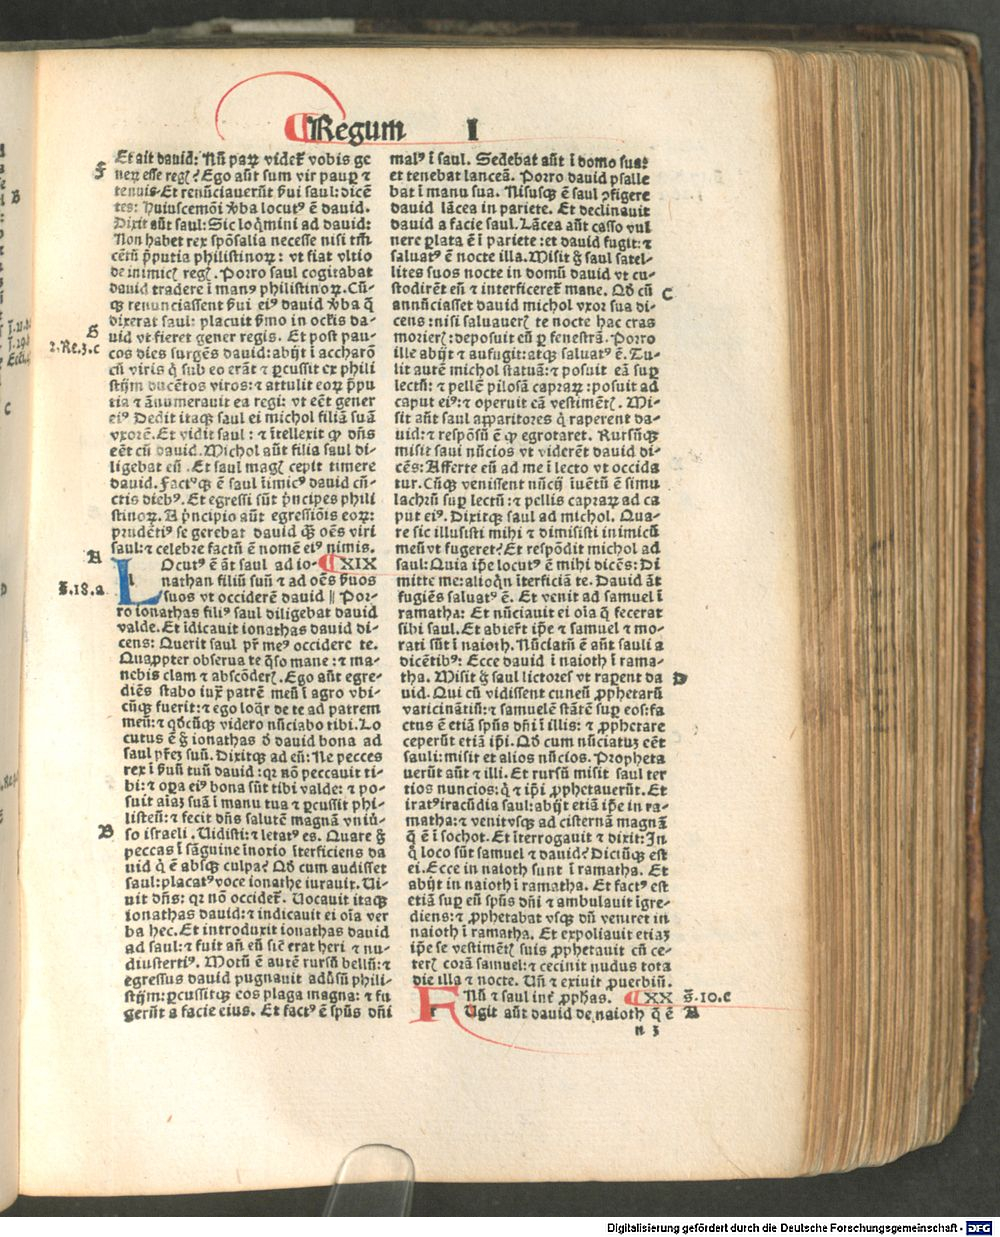 Regum I
F
Et ait dauid: Nū paꝝ videt̄ vobis ge
neꝝ esse regꝭ? Ego aūt sum vir pauꝑ ⁊
tenuis. Et renūciauerūt ẜui saul: dicē
tes: huiuscemōi v̓ba locutꝰ ē dauid.
Dixit aūt saul: Sic loq̄mini ad dauid:
Non habet rex spōsalia necesse nisi tm̄
cētū p̄putia philistinoꝝ: vt fiat vltio
de inimicꝭ regꝭ. Porro saul cogitabat
dauid tradere ī manꝰ philistinoꝝ. Cū-
qꝫ renunciassent ẜui eiꝰ dauid v̓ba q̄
dixerat saul: placuit ẜmo in oclis da-
G
uid vt fieret gener regis. Et post pau-
2. Re. 3. c
cos dies surgēs dauid: abijt ī accharō
cū viris q̄ sub eo erāt ⁊ ꝑcussit ex phili
stijm ducētos viros: ⁊ attulit eoꝝ p̄pu
tia ⁊ ānumerauit ea regi: vt eēt gener
eiꝰ Dedit itaqꝫ saul ei michol filiā suā
vxorē. Et vidit saul: ⁊ ītellexit ꝙ dn̄s
eēt cū dauid. Michol aūt filia saul di-
ligebat eū. Et saul magꝭ cepit timere
dauid. Factꝰqꝫ ē saul īimicꝰ dauid cū-
ctis diebꝰ. Et egressi sūt p̄ncipes phili
stinoꝝ. A p̄ncipio aūt egressiōis eoꝝ:
prudētiꝰ se gerebat dauid qꝫ̄ oēs viri
saul: ⁊ celebre factū ē nomē eiꝰ nimis.
A
Ocutꝰ ē āt saul ad io- XIX
L
nathan filiū suū ⁊ ad oēs ẜuos
S. 18. a
suos vt occiderē dauid || Por-
ro ionathas filiꝰ saul diligebat dauid
valde. Et īdicauit ionathas dauid di-
cens: Querit saul pr̄ meꝰ occidere te.
Quaꝓpter obserua te q̄so mane: ⁊ ma-
nebis clam ⁊ abscōderꝭ. Ego aūt egre-
diēs stabo iuxͣ patrē meū ī agro vbi-
cūqꝫ fuerit: ⁊ ego loq̄r de te ad patrem
meū: ⁊ qd̓cūqꝫ videro nūciabo tibi. Lo
cutus ē g̊ ionathas d̓ dauid bona ad
saul pr̄eꝫ suū. Dixitqꝫ ad eū: Ne pecces
rex ī ẜuū tuū dauid: qꝛ nō peccauit ti-
bi: ⁊ oꝑa eiꝰ bona sūt tibi valde: ⁊ po-
suit aiaꝫ suā ī manu tua ⁊ ꝑcussit phi-
listeū: ⁊ fecit dn̄s salutē magnā vniu̓-
B
so israeli. Uidisti: ⁊ letatꝰ es. Quare g̊
peccas ī sāguine īnoxio īterficiens da
uid q̄ ē absqꝫ culpa? Qd̓ cum audisset
saul: placatꝰ voce ionathe iurauit. Ui-
uit dn̄s: qꝛ nō occidet̄. Uocauit itaqꝫ
ionathas dauid: ⁊ indicauit ei oīa ver
ba hec. Et introduxit ionathas dauid
ad saul: ⁊ fuit añ eū sic̄ erat heri ⁊ nu-
diustertiꝰ. Motū ē autē rursū bellū: ⁊
egressus dauid pugnauit adu̓sū phili-
stijm: ꝑcussitqꝫ eos plaga magna: ⁊ fu
gerūt a facie eius. Et factꝰ ē spūs dn̄i
malꝰ ī saul. Sedebat aūt ī domo sua:
et tenebat lanceā. Porro dauid psalle
bat ī manu sua. Nisusqꝫ ē saul ꝯfigere
dauid lācea in pariete. Et declinauit
dauid a facie saul. Lācea aūt casso vul
nere ꝑlata ē ī pariete: et dauid fugit: ⁊
saluatꝰ ē nocte illa. Misit g̊ saul satel-
lites suos nocte in domū dauid vt cu-
stodirēt eū ⁊ interficeret̄ mane. Qd̓ cū
C
annūciasset dauid michol vxor sua di-
cens: nisi saluauerꝭ te nocte hac cras
morierꝭ: deposuit eū ꝑ fenestrā. Porro
ille abijt ⁊ aufugit: atqꝫ saluatꝰ ē. Tu-
lit autē michol statuā: ⁊ posuit eā suꝑ
lectū: ⁊ pellē pilosā capraꝝ: posuit ad
caput eiꝰ: ⁊ operuit eā vestimētꝭ. Mi-
sit aūt saul apparitores q̄ raperent da-
uid: ⁊ respōsū ē ꝙ egrotaret. Rursūqꝫ
misit saul nūcios vt viderēt dauid di-
cēs: Afferte eū ad me ī lecto vt occida
tur. Cūqꝫ venissent nūcij īuētū ē simu
lachrū suꝑ lectū: ⁊ pellis capraꝝ ad ca
put eiꝰ. Dixitqꝫ saul ad michol. Qua-
re sic illusisti mihi ⁊ dimisisti inimicū
meū vt fugeret? Et respōdit michol ad
saul: Quia ip̄e locutꝰ ē mihi dicēs: Di
mitte me: alioq̄n īterficiā te. Dauid āt
fugiēs saluatꝰ ē. Et venit ad samuel ī
ramatha: Et nūciauit ei oīa q̄ fecerat
sibi saul. Et abier̄t ip̄e ⁊ samuel ⁊ mo-
rati sūt ī naioth. Nūciatū ē aūt sauli a
dicētibꝰ: Ecce dauid ī naioth ī rama-
tha. Misit g̊ saul lictores vt rapent da
D
uid. Qui cū vidissent cuneū ꝓphetarū
vaticinātiū: ⁊ samuelē stātē suꝑ eos: fa
ctus ē etiā spūs dn̄i ī illis: ⁊ ꝓphetare
ceperūt etiā ip̄i. Qd̓ cum nūciatuꝫ eēt
sauli: misit et alios nūcios. Propheta
uerūt aūt ⁊ illi. Et rursū misit saul ter
tios nuncios: q̄ ⁊ ip̄i ꝓphetauerūt. Et
iratꝰ iracūdia saul: abijt etiā ip̄e in ra-
matha: ⁊ venit vsqꝫ ad cisternā magnā
q̄ ē ī sochot. Et īterrogauit ⁊ dixit: In
q̊ loco sūt samuel ⁊ dauid? Dictūqꝫ est
ei. Ecce in naioth sunt ī ramatha. Et
abijt in naioth ī ramatha. Et factꝰ est
etiā suꝑ eū spūs dn̄i ⁊ ambulauit īgre-
diens: ⁊ ꝓphetabat vsqꝫ dū veniret in
naioth ī ramatha. Et expoliauit etiaꝫ
ip̄e se vestimētꝭ suis ꝓphetauit cū ce-
terꝭ corā samuel: ⁊ cecinit nudus tota
die illa ⁊ nocte. Uñ ⁊ exiuit ꝓuerbiū.
Nū ⁊ saul int̄ ꝓphas. XX S. 10. c
F
Ugit aūt dauid de naioth q̄ ē A
n 3
Digitalisierung gefördert durch die Deutsche Forschungsgemeinschaft - DFG